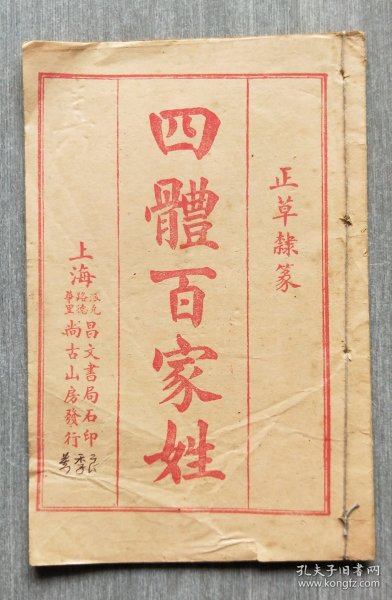 正草隸篆
四體百家姓
上海
昌文書局石印
尚古山房發行
孔夫子旧书网
www.kongfz.com